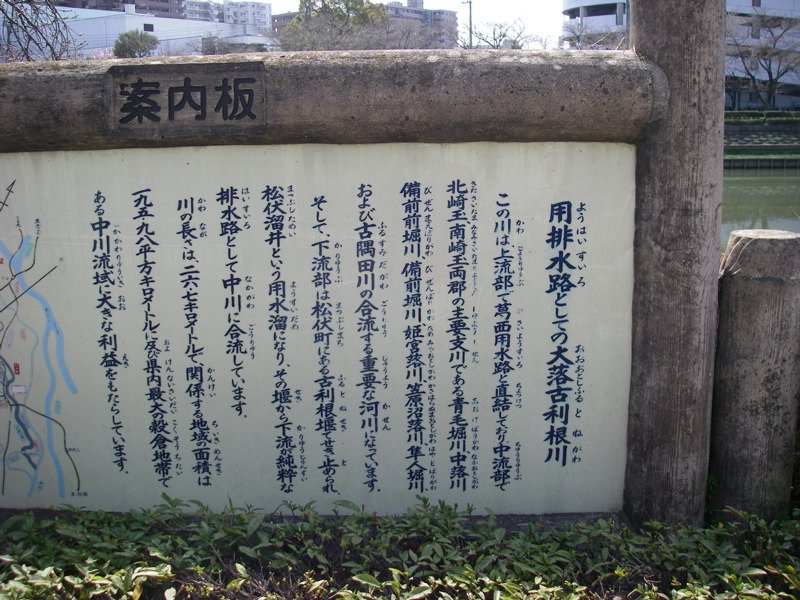 案内板
用排水路としての大落古利根川
この川は上流部で葛西用水路と直結しており、中流部で
北崎玉、南崎玉両郡の主要支川である青毛堀川、中落川
備前前堀川、備前堀川、姫宮落川、笠原沼落川、隼人堀川、
および古隅田川の合流する重要な河川になっています。
そして、下流部は松伏町にある古利根堰でせき止められ、
松伏溜井という用水溜になり、その堰から下流が純粋な
排水路として中川に合流しています。
川の長さは、二六・七キロメートルで、関係する地域の面積は
一九五九八平方キロメートルに及び県内最大の穀倉地帯で
ある中川流域に大きな利益をもたらしています。